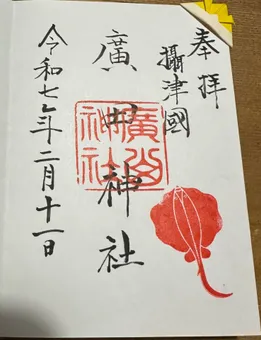 奉拝
攝津國
廣田神社
廣田神社
令和七年二月十一日